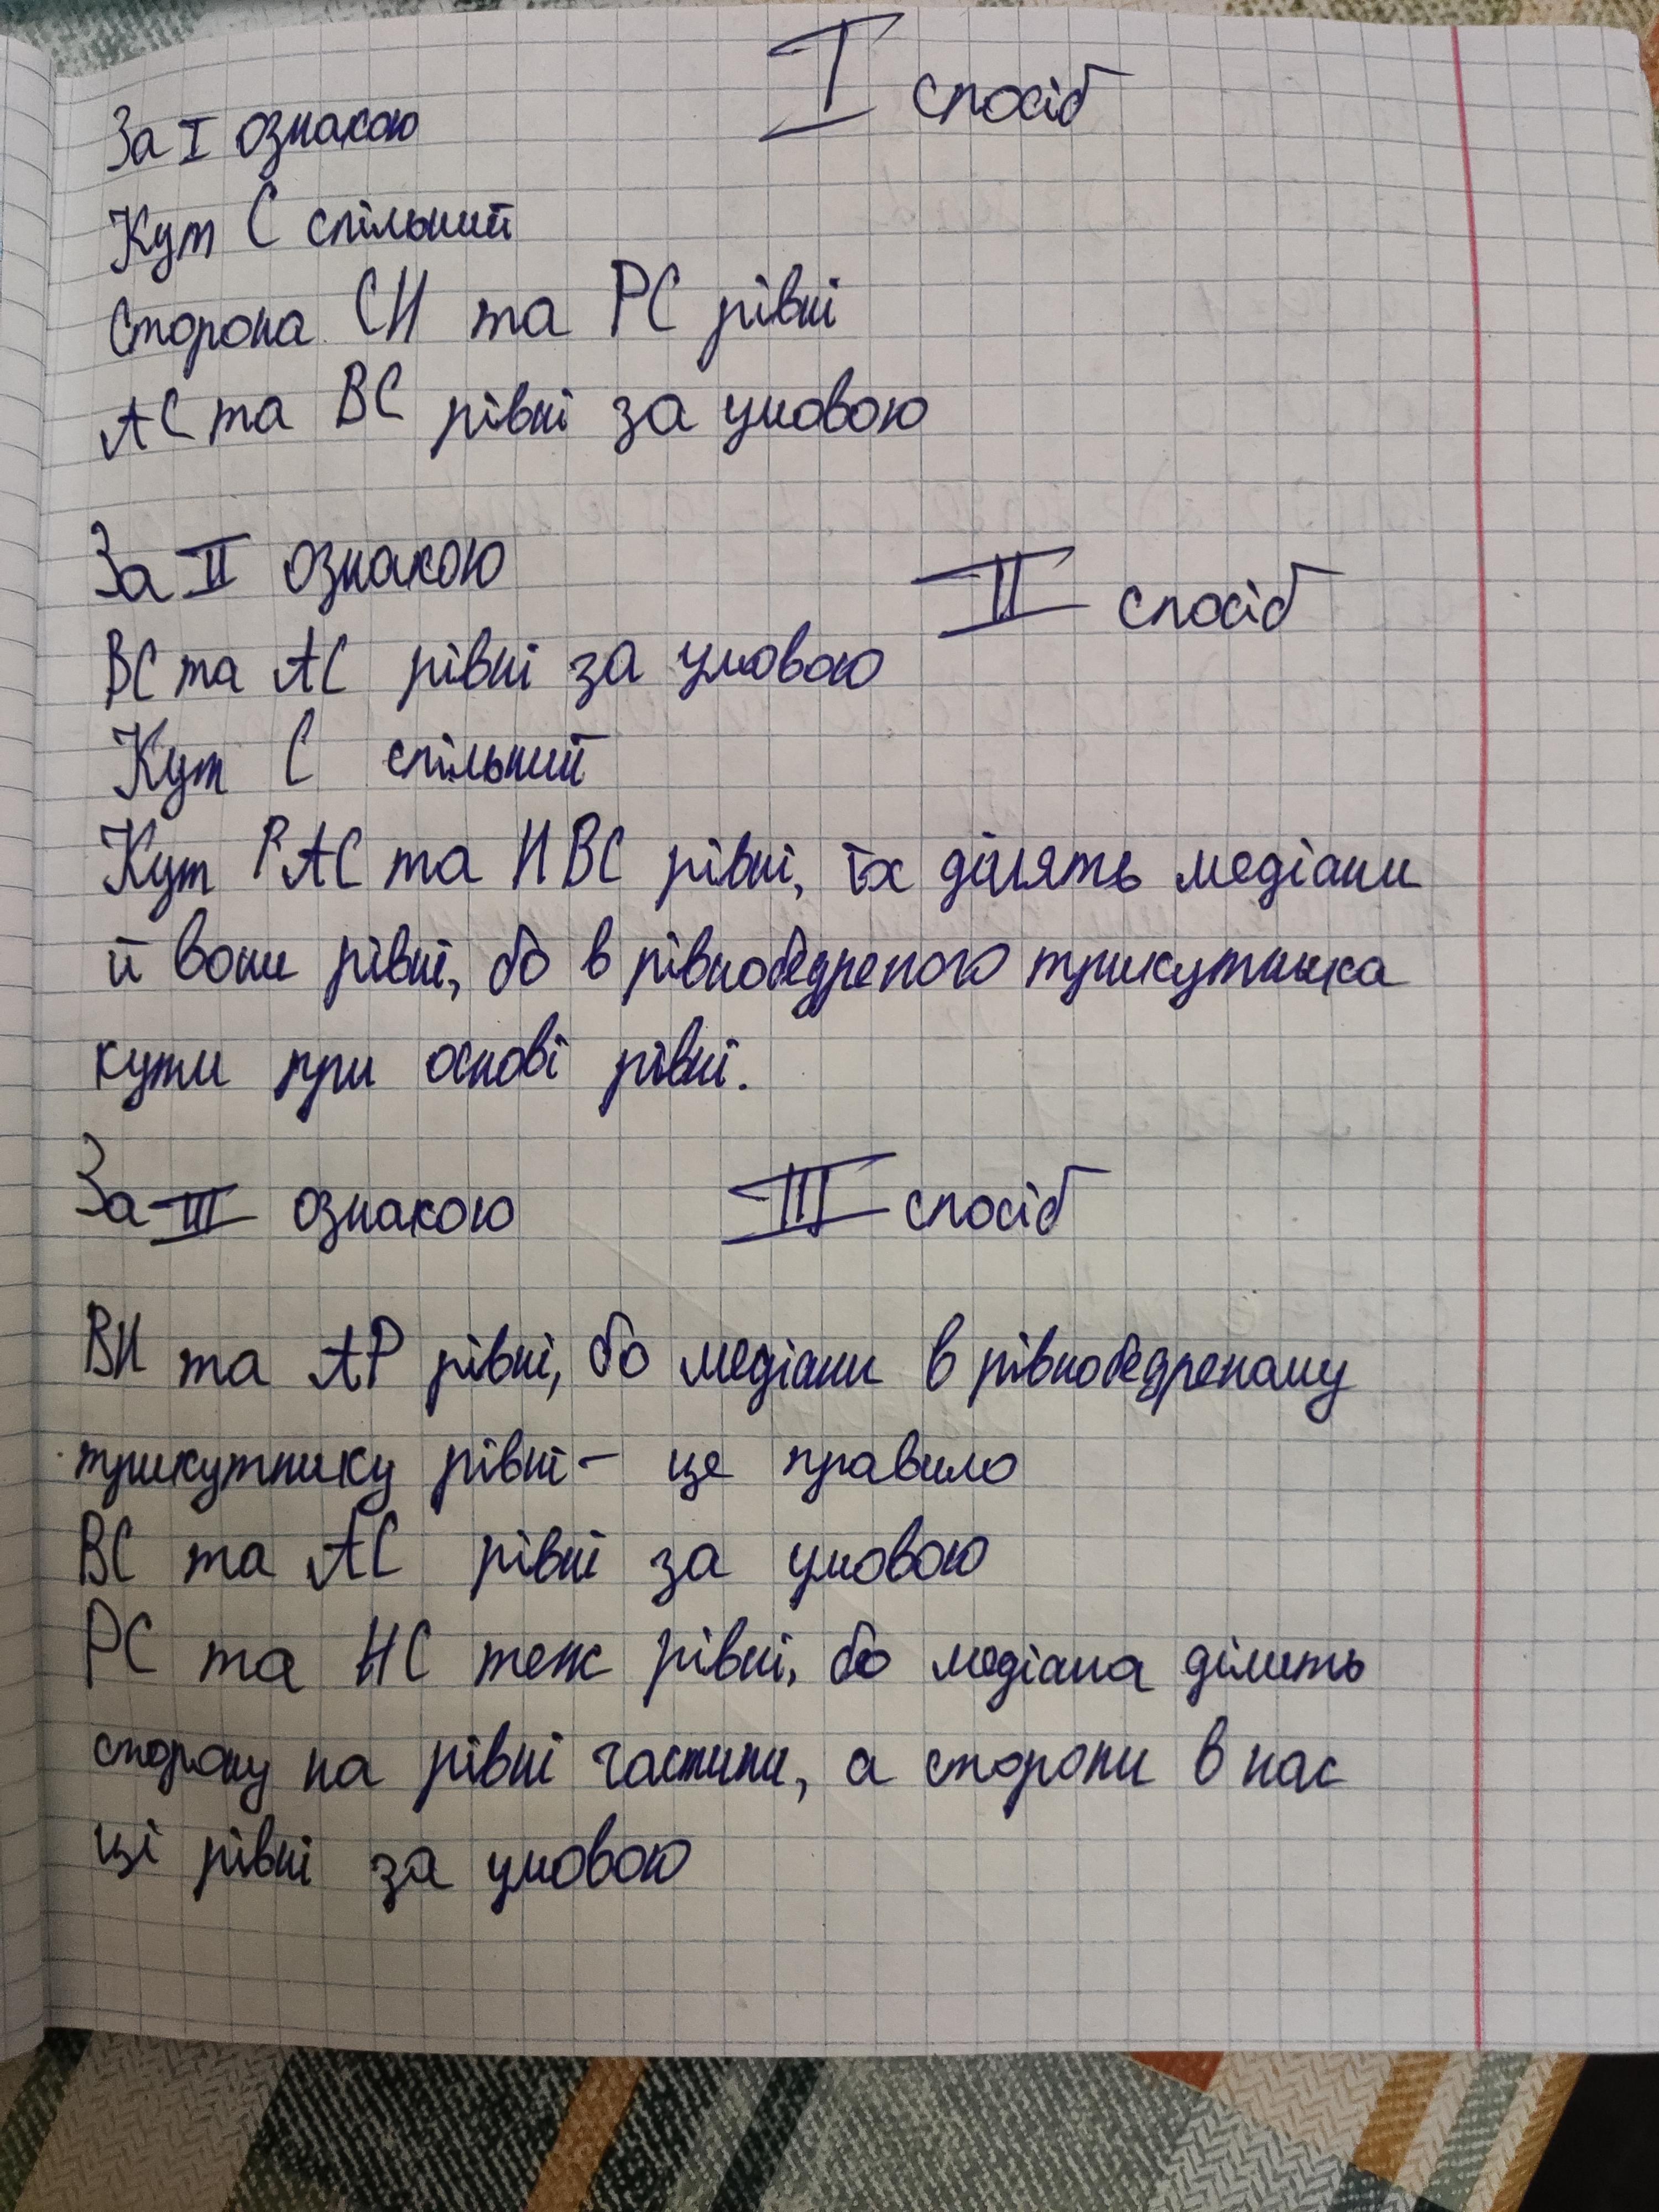 I спосіб
За I ознакою
Кут C спільний
Сторона CH та PC рівні
AC та BC рівні за умовою
За II ознакою
II спосіб
BC та AC рівні за умовою
Кут C спільний
Кут PAC та HBC рівні, їх ділять медіани
й вони рівні, бо в рівнобедреного трикутника
кути при основі рівні.
За III ознакою
III спосіб
BH та AP рівні, бо медіани в рівнобедреному
трикутнику рівні - це правило
BC та AC рівні за умовою
PC та HC теж рівні, бо медіана ділить
сторону на рівні частини, а сторони в нас
ці рівні за умовою